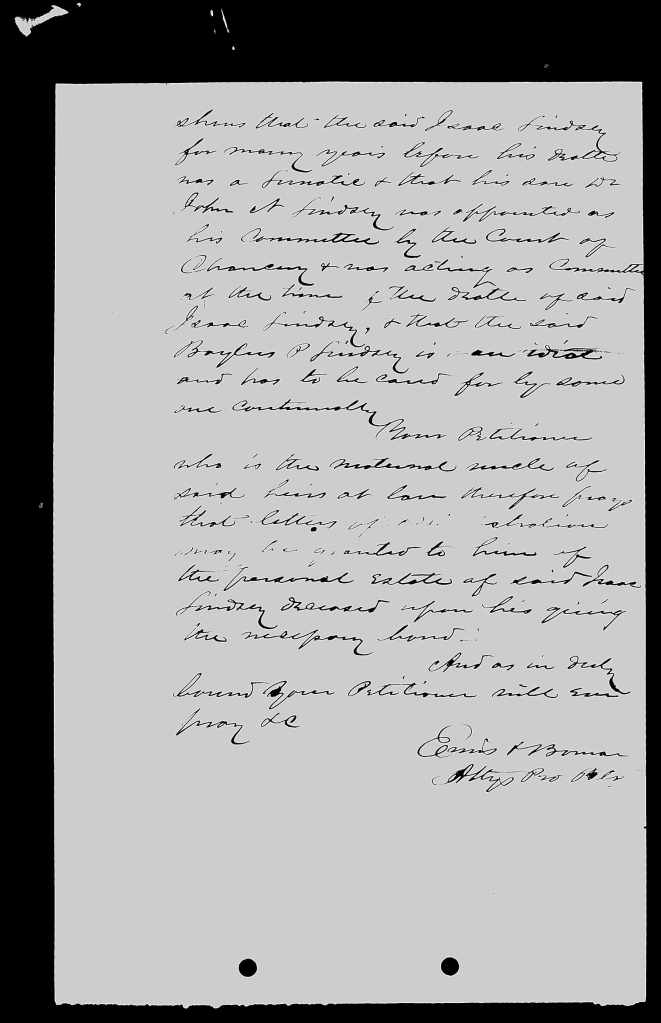 shows that the said Isaac Lindsey
for many years before his death
was a Lunatic & that his son Dr
John N Lindsey was appointed as
his Committee by the Court of
Chancery & was acting as Committee
at the time of the death of said
Isaac Lindsey, & that the said
Baylus P Lindsey is an idiot
and has to be cared for by some
one continually
Your Petitioner
who is the maternal uncle of
said heirs at law therefore prays
that letters of
may be granted to him of
the personal Estate of said Isaac
Lindsey deceased upon his giving
the necessary bond
And as in duty
bound your Petitioner will Ever
pray &C
& Bomar
Attys Pro Petr